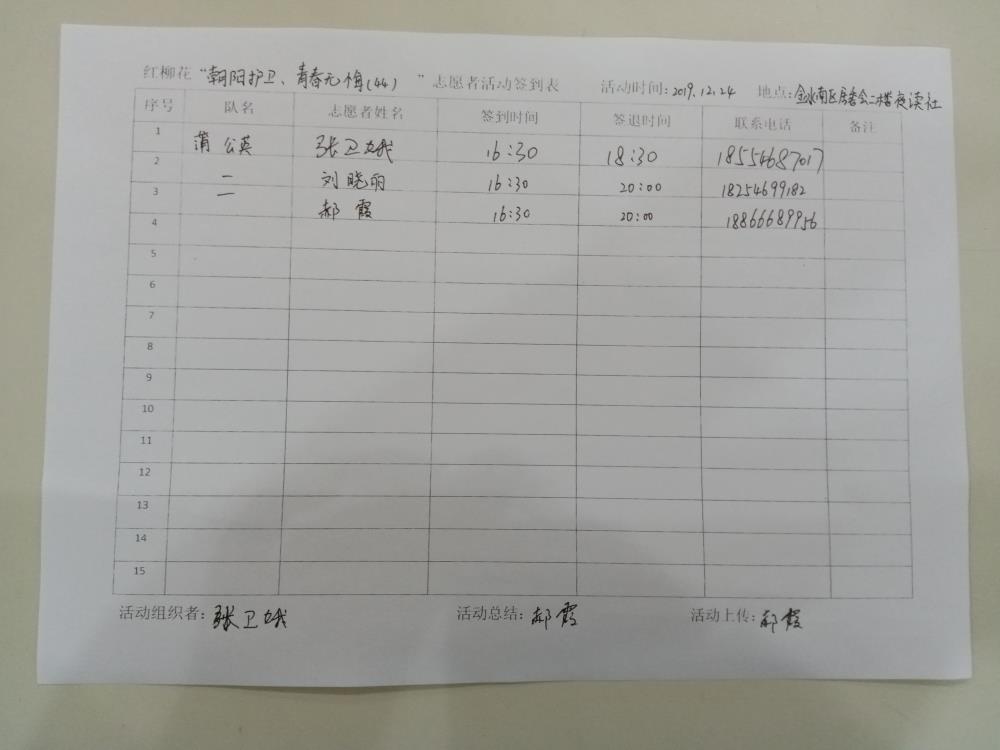 红柳花“朝阳护卫、青春无悔(44)”志愿者活动签到表 活动时间:2019.12.24 地点:金水南区居委会二楼夜读社
序号 队名 志愿者姓名 签到时间 签退时间 联系电话 备注
1 蒲公英 张卫娥 16:30 18:30 18554687017
2 二 刘晓丽 16:30 20:00 18254699182
3 二 郝霞 16:30 20:00 18866689956
4
5
6
7
8
9
10
11
12
13
14
15
活动组织者:张卫娥 活动总结:郝霞 活动上传:郝霞